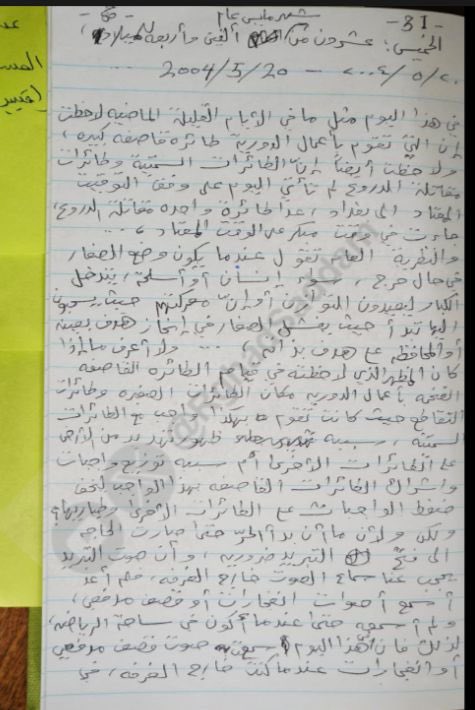 - 31 -
شهر مايس عام
الخميس: عشرون من ألفين وأربعه للميلاد
٢٠/٥/٢٠٠٤ - 2004/5/20
في هذا اليوم مثل ما في الأيام القليلة الماضيه لاحظت
إن التي تقوم بأعمال الدورية طائرة قاصفه كبيره،
ولاحظت أيضاً إن الطائرات السمتية وطائرات
مقاتلة الدروع لم تأتي اليوم على وفق التوقيت
المعتاد الى بغداد، عدا طائرة واحده مقاتلة الدروع،
جاءت في وقت مبكر عن الوقت المعتاد
والنظرية العامه تقول عندما يكون وضع الصغار
في حال حرج، إنسان أو أسلحة، يتدخل
الكبار ليعيدون التوازن أو إن معركتهم حيث يسعون
اليها تبدأ حيث يفشل الصغار في إنجاز هدف بعينه
أو المحافظه على هدف بذاته، ... ولا أعرف ماإذا
كان المظهر الذي لاحظته في قيام الطائره القاصفه
الضخمه بأعمال الدوريه مكان الطائرات الصغيره وطائرات
حيث كانت تقوم بهكذا واجب مع الطائرات
السمتيه، سببه ظهور تهديد من الأرض
على الطائرات الأخرى أم سببه توزيع واجبات
واشراك الطائرات القاصفه بهذا الواجب لتخف
ضغوط الواجبات على الطائرات الأخرى وطياريها؟
ولكن ولأن ما أن بدأ الحر حتى صارت الحاجه
الى فتح التبريد ضروريه، وأن صوت التبريد
يحجب عنا سماع الصوت خارج الغرفه، فلم أعد
أسمع أصوات انفجارات أو قصف مدفعي،
ولم أسمعه حتى عندما أكون في ساحة الرياضه،
لذلك فان هذا اليوم سمعت صوت قصف مدفعي
أو انفجارات عندما كنت خارج الغرفه، في